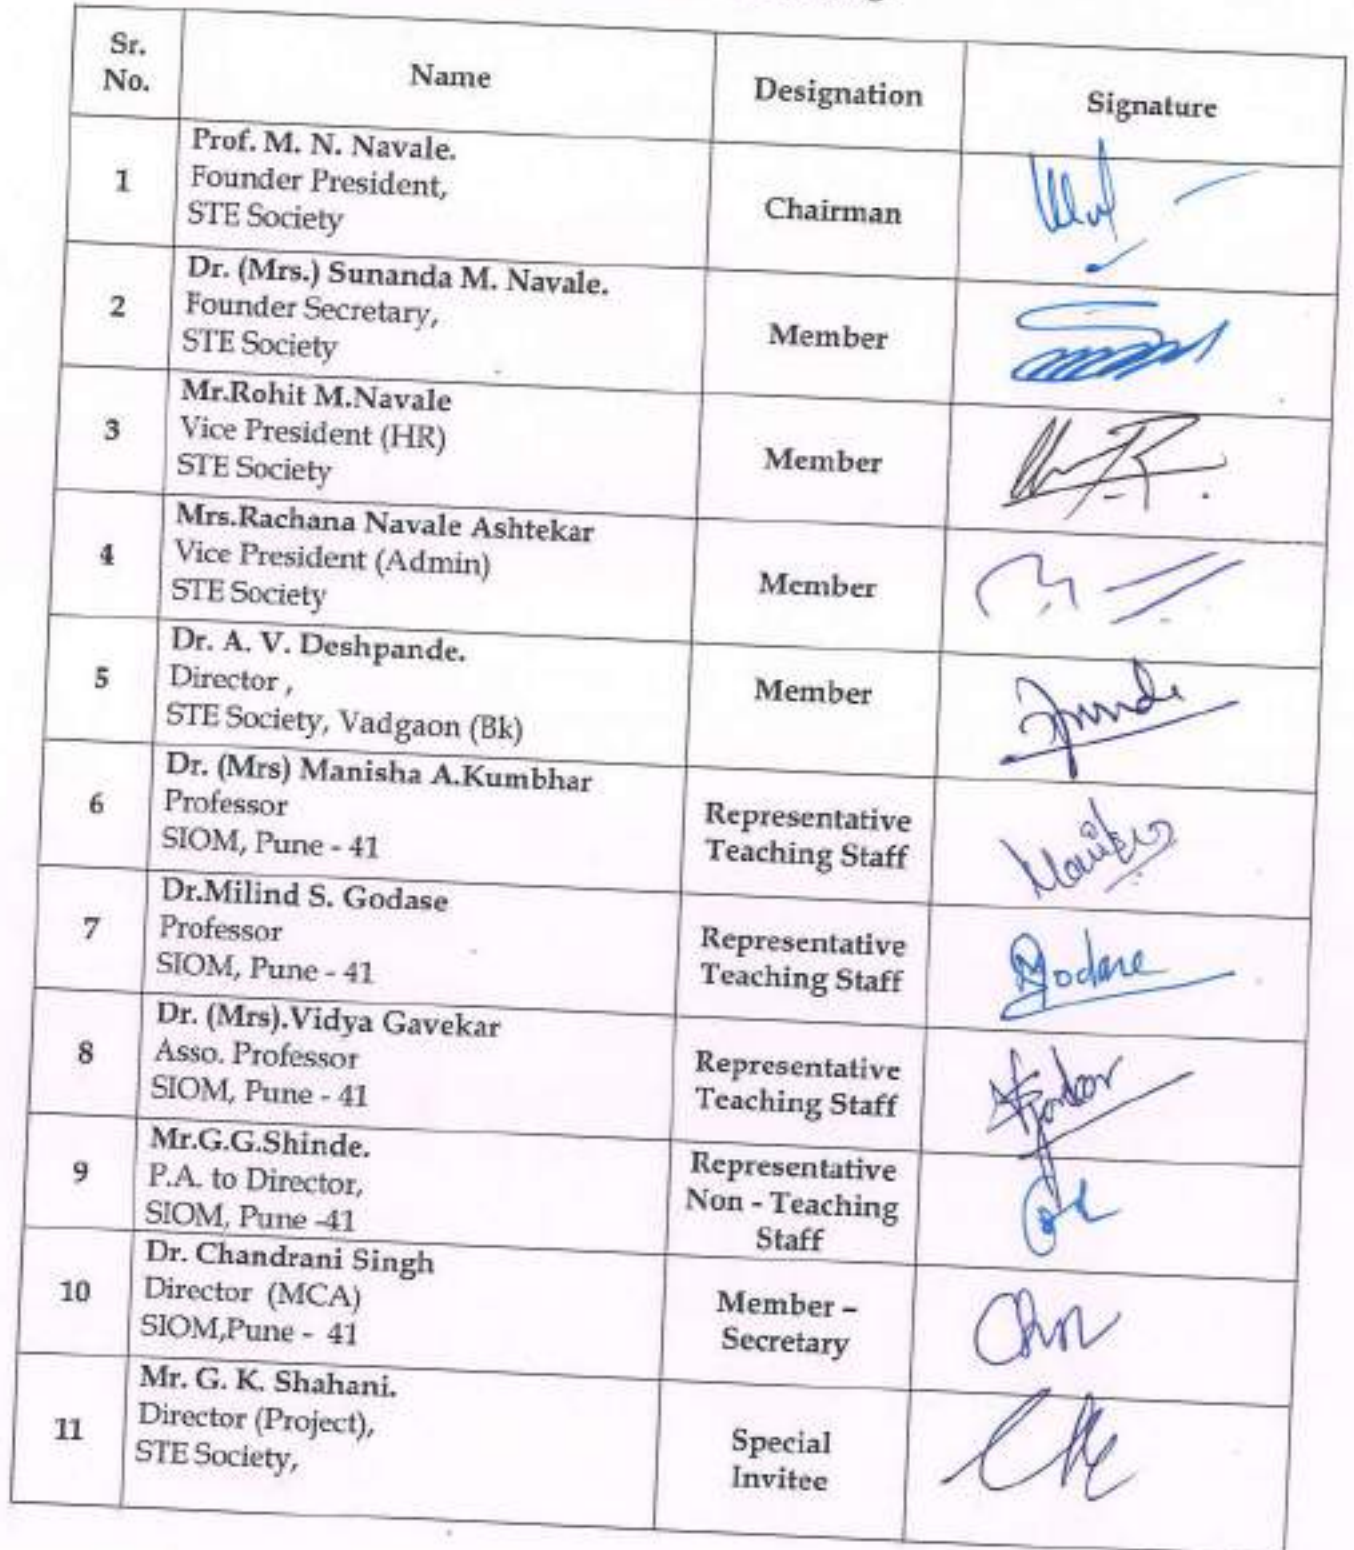 Sr.
No.
Name
Designation
Signature
1
Prof. M. N. Navale.
Founder President,
STE Society
Chairman
2
Dr. (Mrs.) Sunanda M. Navale.
Founder Secretary,
STE Society
Member
3
Mr.Rohit M.Navale
Vice President (HR)
STE Society
Member
4
Mrs.Rachana Navale Ashtekar
Vice President (Admin)
STE Society
Member
5
Dr. A. V. Deshpande.
Director ,
STE Society, Vadgaon (Bk)
Member
6
Dr. (Mrs) Manisha A.Kumbhar
Professor
SIOM, Pune - 41
Representative
Teaching Staff
7
Dr.Milind S. Godase
Professor
SIOM, Pune - 41
Representative
Teaching Staff
Godase
8
Dr. (Mrs).Vidya Gavekar
Asso. Professor
SIOM, Pune - 41
Representative
Teaching Staff
9
Mr.G.G.Shinde.
P.A. to Director,
SIOM, Pune -41
Representative
Non - Teaching
Staff
10
Dr. Chandrani Singh
Director (MCA)
SIOM,Pune - 41
Member –
Secretary
11
Mr. G. K. Shahani.
Director (Project),
STE Society,
Special
Invitee